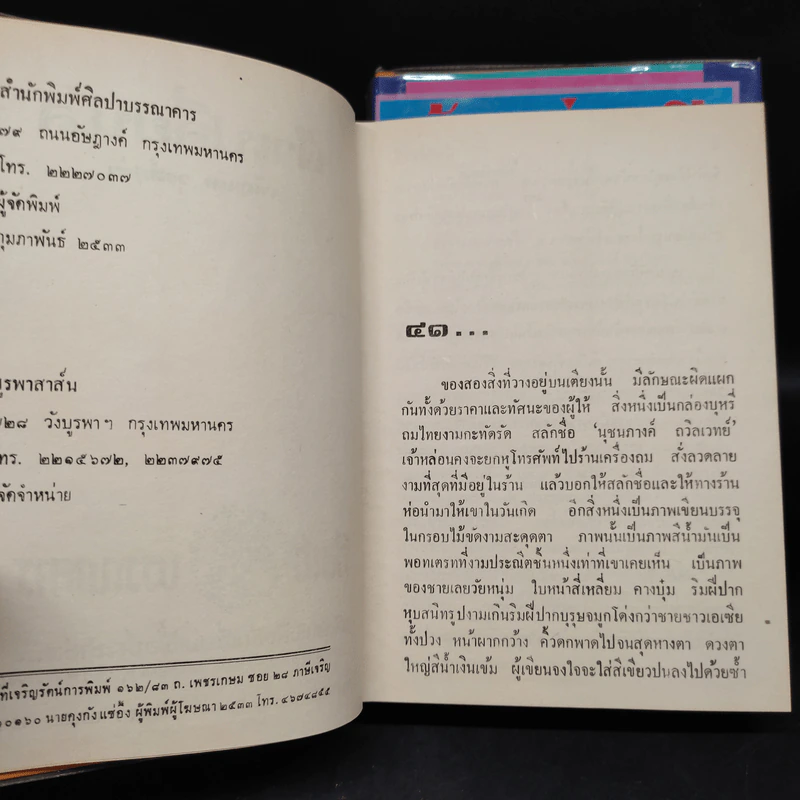 สำนักพิมพ์ศิลปาบรรณาคาร
๗๙ ถนนอัษฎางค์ กรุงเทพมหานคร
โทร. ๒๒๒๗๐๓๗
ผู้จัดพิมพ์
กุมภาพันธ์ ๒๕๓๓
บูรพาสาส์น
๒๘ วังบูรพาฯ กรุงเทพมหานคร
โทร. ๒๒๑๕๖๗๒, ๒๒๓๗๙๗๕
จัดจำหน่าย
ที่เจริญรัตน์การพิมพ์ ๑๖๒/๘๓ ถ. เพชรเกษม ซอย ๒๘ ภาษีเจริญ
๑๐๑๖๐ นายคุงกัง แซ่อึ้ง ผู้พิมพ์ผู้โฆษณา ๒๕๓๓ โทร. ๔๖๗๔๘๕๕
๔๑...
ของสองสิ่งที่วางอยู่บนเตียงนั้น มีลักษณะผิดแผก
กันทั้งด้วยราคาและทัศนะของผู้ให้ สิ่งหนึ่งเป็นกล่องบุหรี่
ถมไทยงามกะทัดรัด สลักชื่อ 'นุชนภางค์ ถวิลเวทย์'
เจ้าหล่อนคงจะยกหูโทรศัพท์ไปร้านเครื่องถม สั่งลวดลาย
งามที่สุดที่มีอยู่ในร้าน แล้วบอกให้สลักชื่อและให้ทางร้าน
ห่อนำมาให้เขาในวันเกิด อีกสิ่งหนึ่งเป็นภาพเขียนบรรจุ
ในกรอบไม้ขัดงามสะดุดตา ภาพนั้นเป็นภาพสีน้ำมันเป็น
พอทเตรทที่งามประณีตชิ้นหนึ่งเท่าที่เขาเคยเห็น เป็นภาพ
ของชายเลยวัยหนุ่ม ใบหน้าสี่เหลี่ยม คางบุ๋ม ริมฝีปาก
หุบสนิทรูปงามเกินริมฝีปากบุรุษจมูกโด่งกว่าชายชาวเอเซีย
ทั้งปวง หน้าผากกว้าง คิ้วตกพาดไปจนสุดหางตา ดวงตา
ใหญ่สีน้ำเงินเข้ม ผู้เขียนจงใจจะใส่สีเขียวปนลงไปด้วยซ้ำ